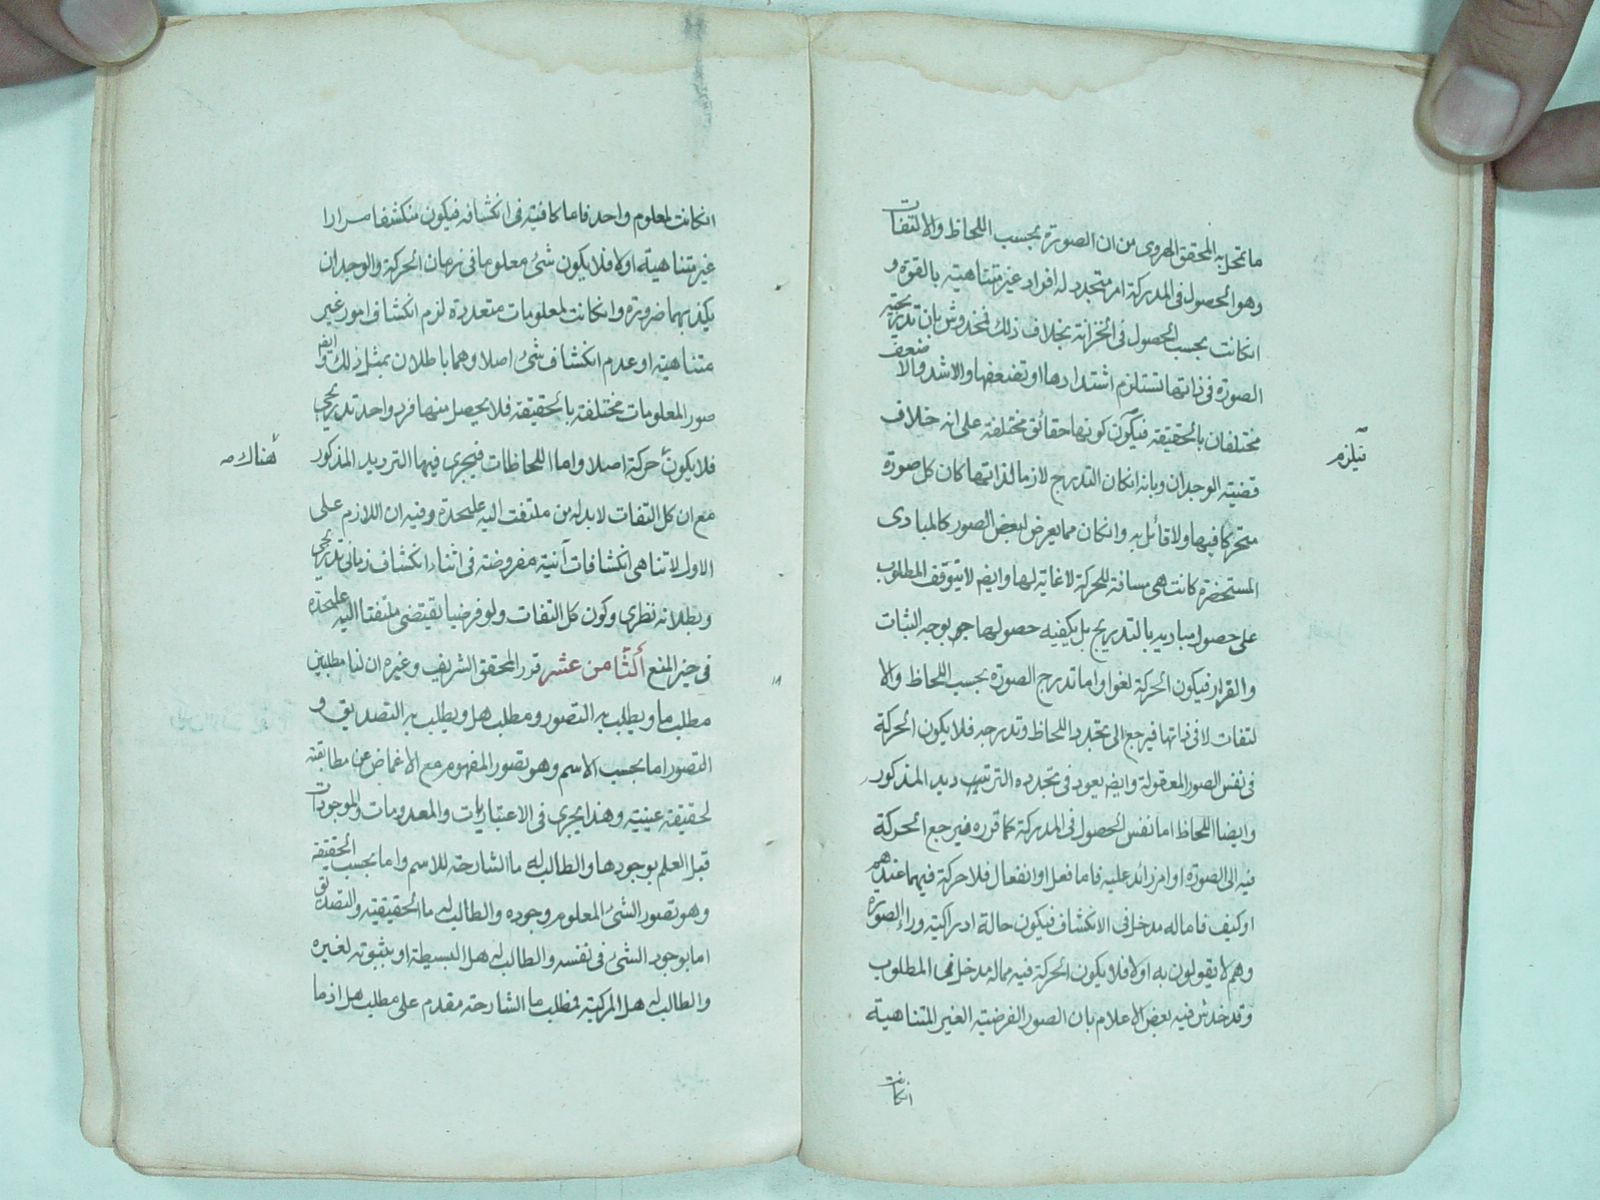 ما تحل به المحقق الهروى من ان الصورة بحسب اللحاظ والالتفات
وهو الحصول فى المدركة امر متجدد له افراد غير متناهية بالقوة و
انكانت بحسب الحصول فى الخزانة بخلاف ذلك فمخدوش بان تدريجية
الصورة فى ذاتها تستلزم اشتدادها او تضعفها والاشد والاضعف
مختلفان بالحقيقة فيكون كونها حقائق مختلفة على انه خلاف
يستلزم
قضية الوجدان وبانه انكان التدرج لازما لذاتها كان كل صورة
متحركا فيها ولا قائل به وانكان مما يعرض لبعض الصور كالمبادى
المستحضرة كانت هى مسافة للحركة لا غاية لها وايضم لا يتوقف المطلوب
على حصول مباديه بالتدريج بل يكفيه حصولها جم بوجه الثبات
والقرار فيكون الحركة لغوا واما تدرج الصورة بحسب اللحاظ والا
لتفات لا فى ذاتها فيرجع الى تجدد اللحاظ وتدرجه فلا يكون الحركة
فى نفس الصور المعقولة وايضم يعود فى تجدده الترديد المذكور
وايضا اللحاظ اما نفس الحصول فى المدركة كما قرره فيرجع الحركة
فيه الى الصورة او امر زائد عليه فاما فعل او انفعال فلا حركة فيهما عندهم
او كيف فاما له مدخل فى الانكشاف فيكون حالة ادراكية وراء الصورة
وهم لا يقولون به او لا فلا يكون الحركة فيه مما له مدخل فى المطلوب
وقد خدش فيه بعض الاعلام بان الصور الفرضية الغير المتناهية
انكانت
انكانت لمعلوم واحد فاما كافية فى انكشافه فيكون منكشفا مرارا
غير متناهية او لا فلا يكون شئ معلوما فى زمان الحركة والوجدان
يكذبهما ضرورة وانكانت لمعلومات متعددة لزم انكشاف امور غير
متناهية او عدم انكشاف شئ اصلا وهما باطلان بمثل ذلك وايضم
صور المعلومات مختلفة بالحقيقة فلا يحصل منها فرد واحد تدريجى
فلا يكون حركة اصلا واما اللحاظات فيجرى فيها الترديد المذكور
هناك صه
مع ان كل التفات لا بد له من ملتفت اليه عليحدة وفيه ان اللازم على
الاول لا تناهى انكشافات آنية مفروضة فى اثناء انكشاف زمانى تدريجى
وبطلانه نظرى وكون كل التفات ولو فرضيا يقتضى ملتفتا اليه عليحدة
فى حيز المنع الثامن عشر قرر المحقق الشريف وغيره ان لنا مطلبين
مطلب ما ويطلب به التصور ومطلب هل ويطلب به التصديق و
التصور اما بحسب الاسم وهو تصور المفهوم مع الاغماض عن مطابقته
لحقيقة عينية وهذا يجرى فى الاعتباريات والمعدومات والموجودات
قبل العلم بوجودها والطالب له ما الشارحة للاسم واما بحسب الحقيقة
وهو تصور الشئ المعلوم وجوده والطالب له ما الحقيقية والتصديق
اما بوجود الشئ فى نفسه والطالب له هل البسيطة او بثبوته لغيره
والطالب له هل المركبة فمطلب ما الشارحة مقدم على مطلب هل اذ ما